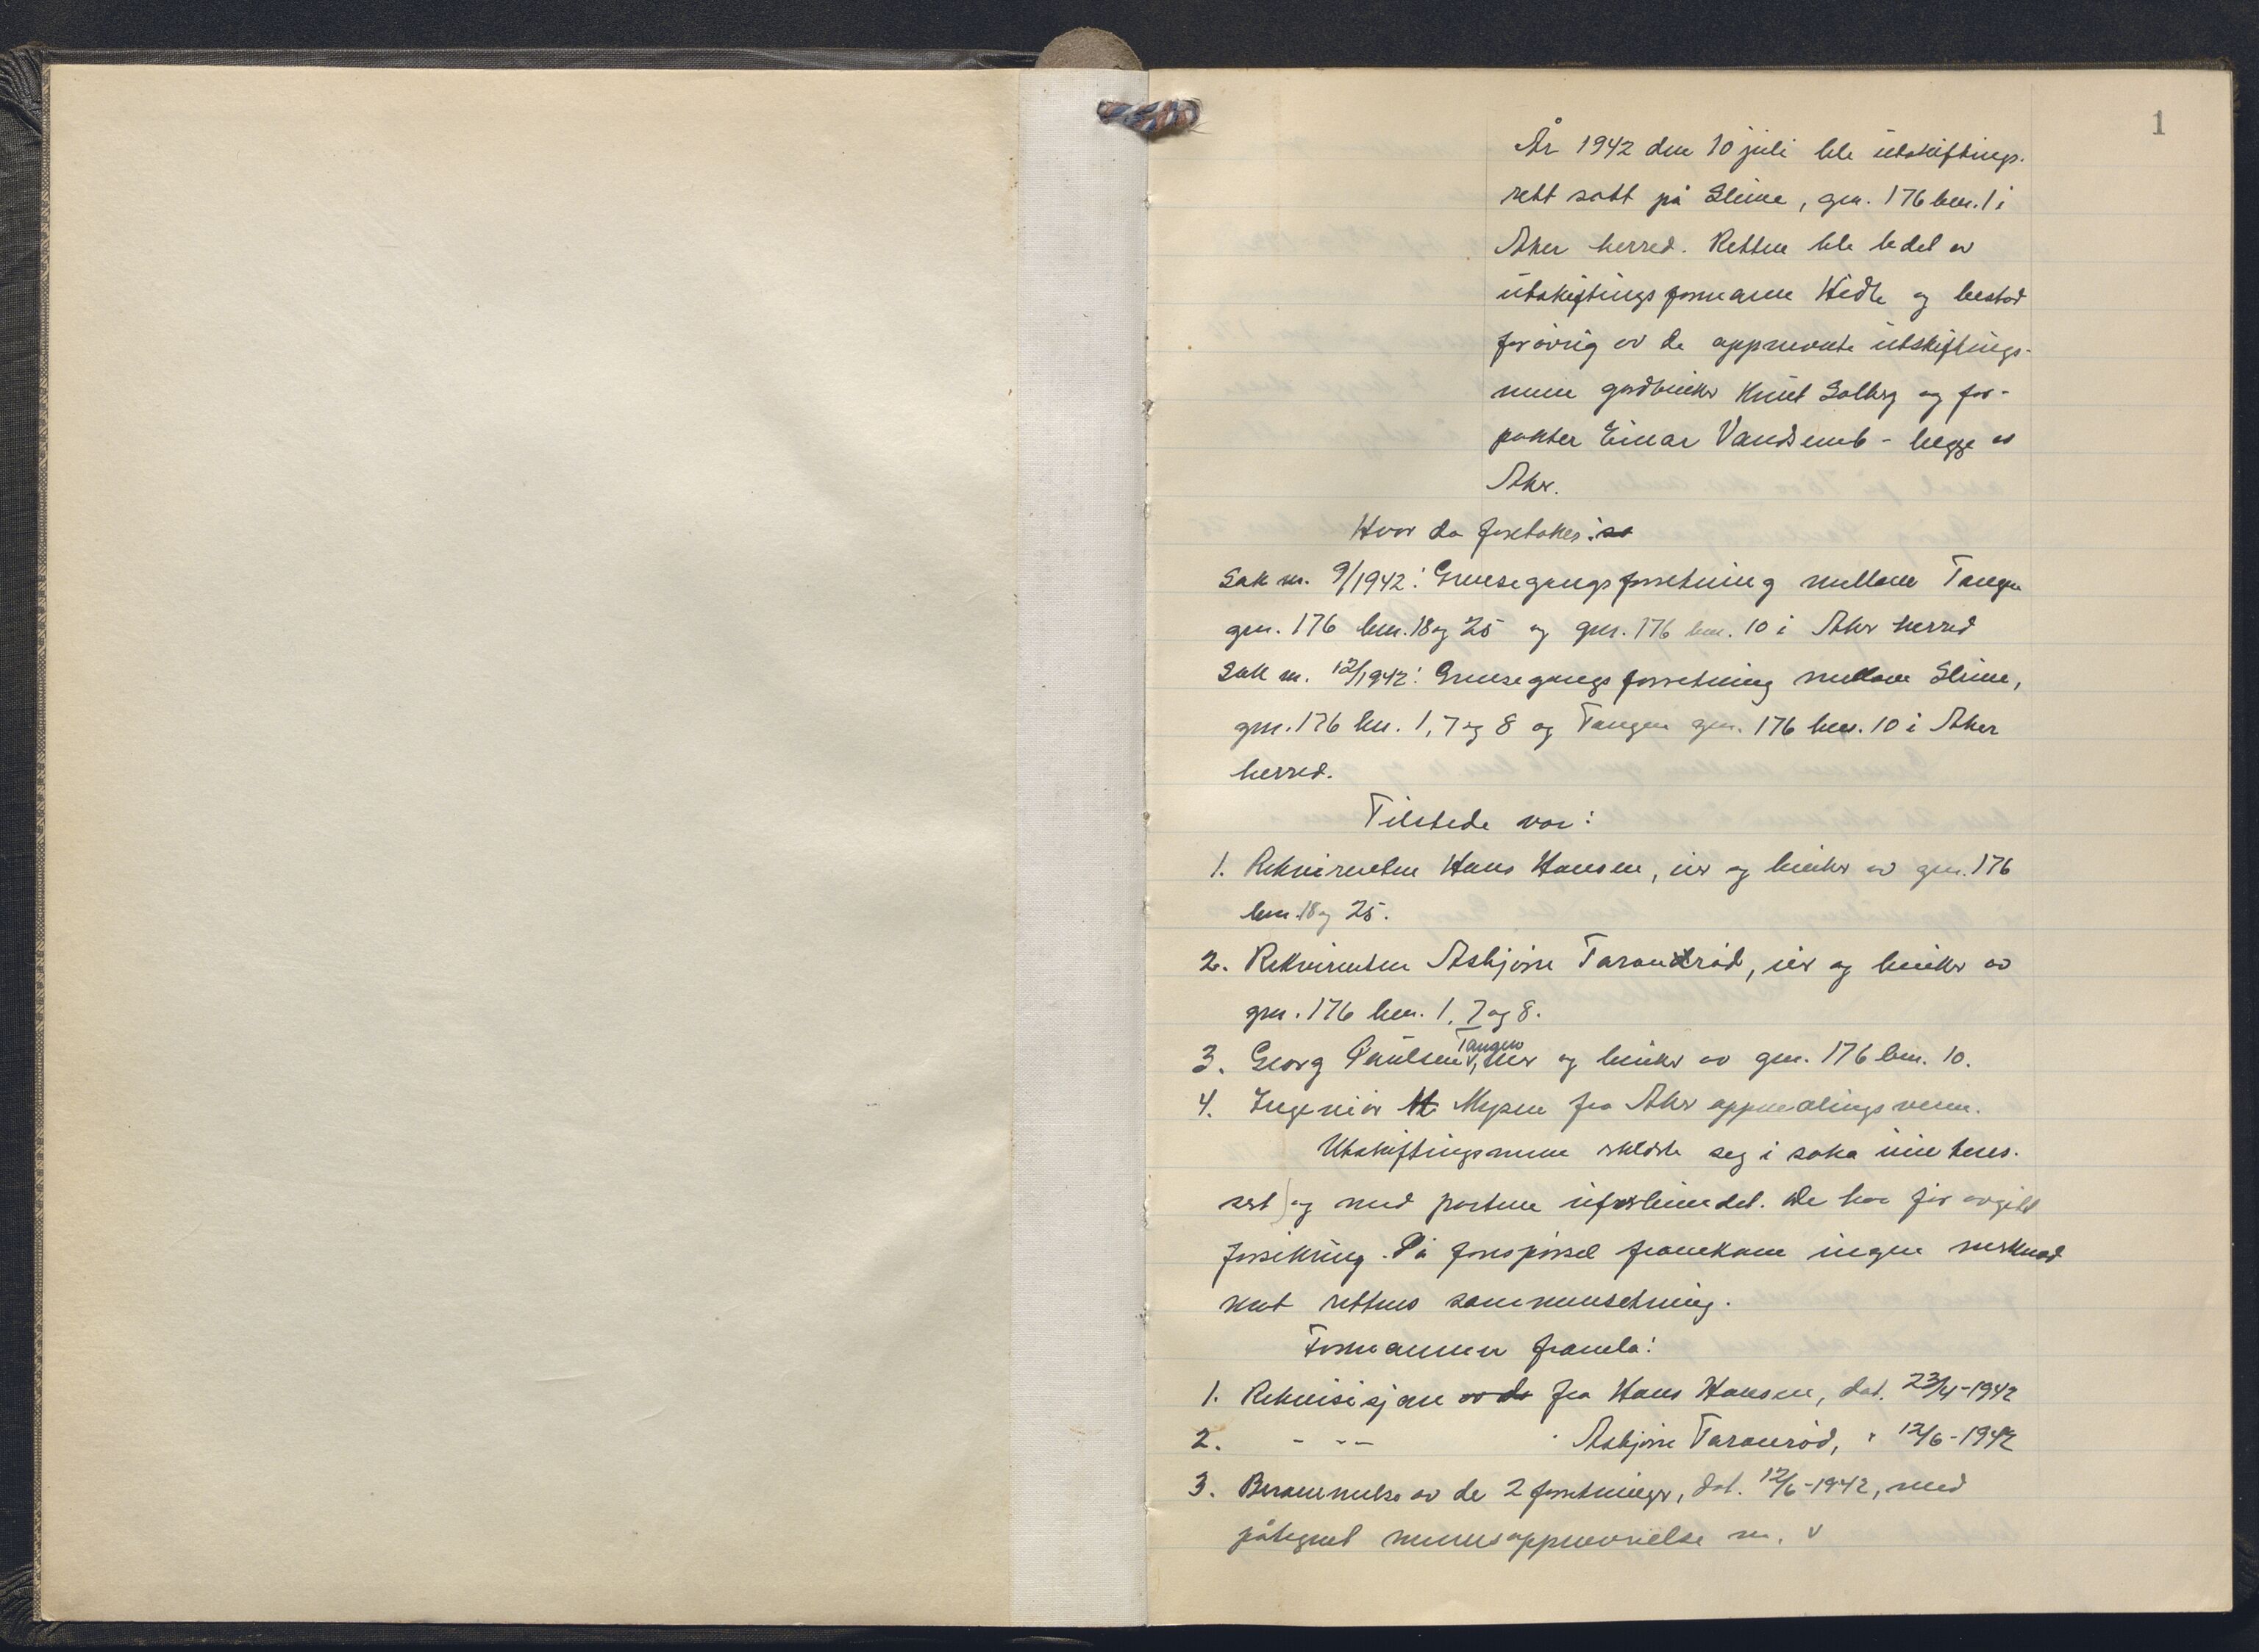 1
År 1942 den 10 juli ble utskiftings-
rett satt på Slime, gnr. 176 bnr. 1 i
Aker herred. Retten ble ledet av
utskiftingsformann Hidle og bestod
forøvrig av de oppnevnte utskiftings-
menn gårdbruker Knut Solberg og for-
pakter Einar Vandsemb - begge av
Aker.
Hvor da foretokes:
Sak nr. 9/1942: Grensegangsforretning mellom Tangen
gnr. 176 bnr. 18 og 25 og gnr. 176 bnr. 10 i Aker herred
Sak nr. 12/1942: Grensegangsforretning mellom Slime,
gnr. 176 bnr. 1, 7 og 8 og Tangen gnr. 176 bnr. 10 i Aker
herred.
Tilstede var:
1. Rekvirenten Hans Hansen, eier og bruker av gnr. 176
bnr. 18 og 25.
2. Rekvirenten Asbjørn Taranrød, eier og bruker av
gnr. 176 bnr. 1, 7 og 8.
3. Georg Paulsen Tangen, eier og bruker av gnr. 176 bnr. 10.
4. Ingeniør Mysen fra Aker oppmålingsvesen.
Utskiftingsmenn erklærte seg i saka uinteres-
sert og med partene uforbundet. De har før avgitt
forsikring. På forespørsel framkom ingen merknad
mot rettens sammensetning.
Formannen framla:
1. Rekvisisjon fra Hans Hansen, dat. 23/4-1942
2. - -- Asbjørn Taranrød, " 12/6-1942
3. Berammelse av de 2 forretninger, dat. 12/6-1942, med
påtegnet mennsoppnevnelse m. v